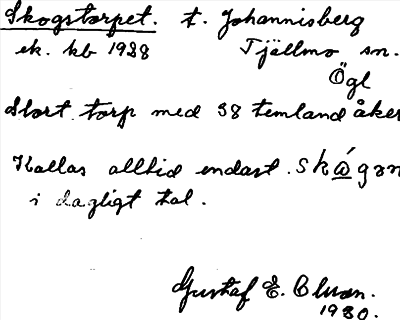 Skogstorpet. t. Johannisberg
ek. kb 1928 Tjällmo sn.
Ögl
Stort torp med 38 temland åker
Kallas alltid endast skógən
i dagligt tal.
Gustaf E.
1930.